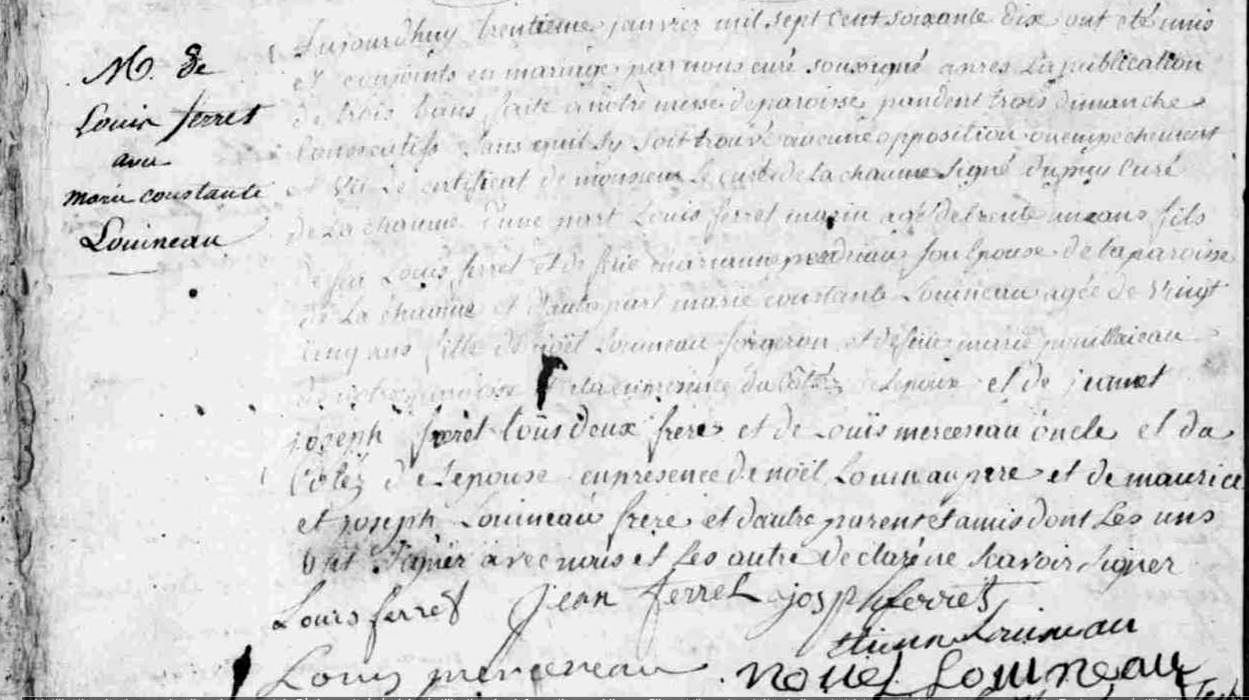 M. de
Louis ferret
avec
marie constante
Louineau
Aujourdhuy trentieme janvier mil sept cent soixante dix ont été unis
et conjoints en mariage par nous curé soussigné apres la publication
de trois bans faite a notre messe de paroisse pandent trois dimanche
consecutifs sans quil sy soit trouvé aucune opposition ou empechement
et vû le certificat de monsieur le curé de la chaume signé dupuis curé
de la chaume d'une part Louis ferret marin agé de trente un ans fils
de feu Louis ferret et de feüe marianne perdriau son Epouse de la paroisse
de la chaume et d'autre part marie constante Louineau agée de vingt
cinq ans fille de noël Louineau forgeron et de feüe marie
de notre paroisse et la en presence du Coté de Lepoux et de
joseph ferret tous deux frere et de Louis merceneau oncle et du
Cotez de Lepouse en presence de noël Louineau pere et de maurice
et joseph Louineau frere et dautre parent et amis dont les uns
ont signer avec nous et les autre declaré ne scavoir signer
Louis ferret jean ferret josph ferret
etienn Louineau
Louis merceneau nouel Louineau